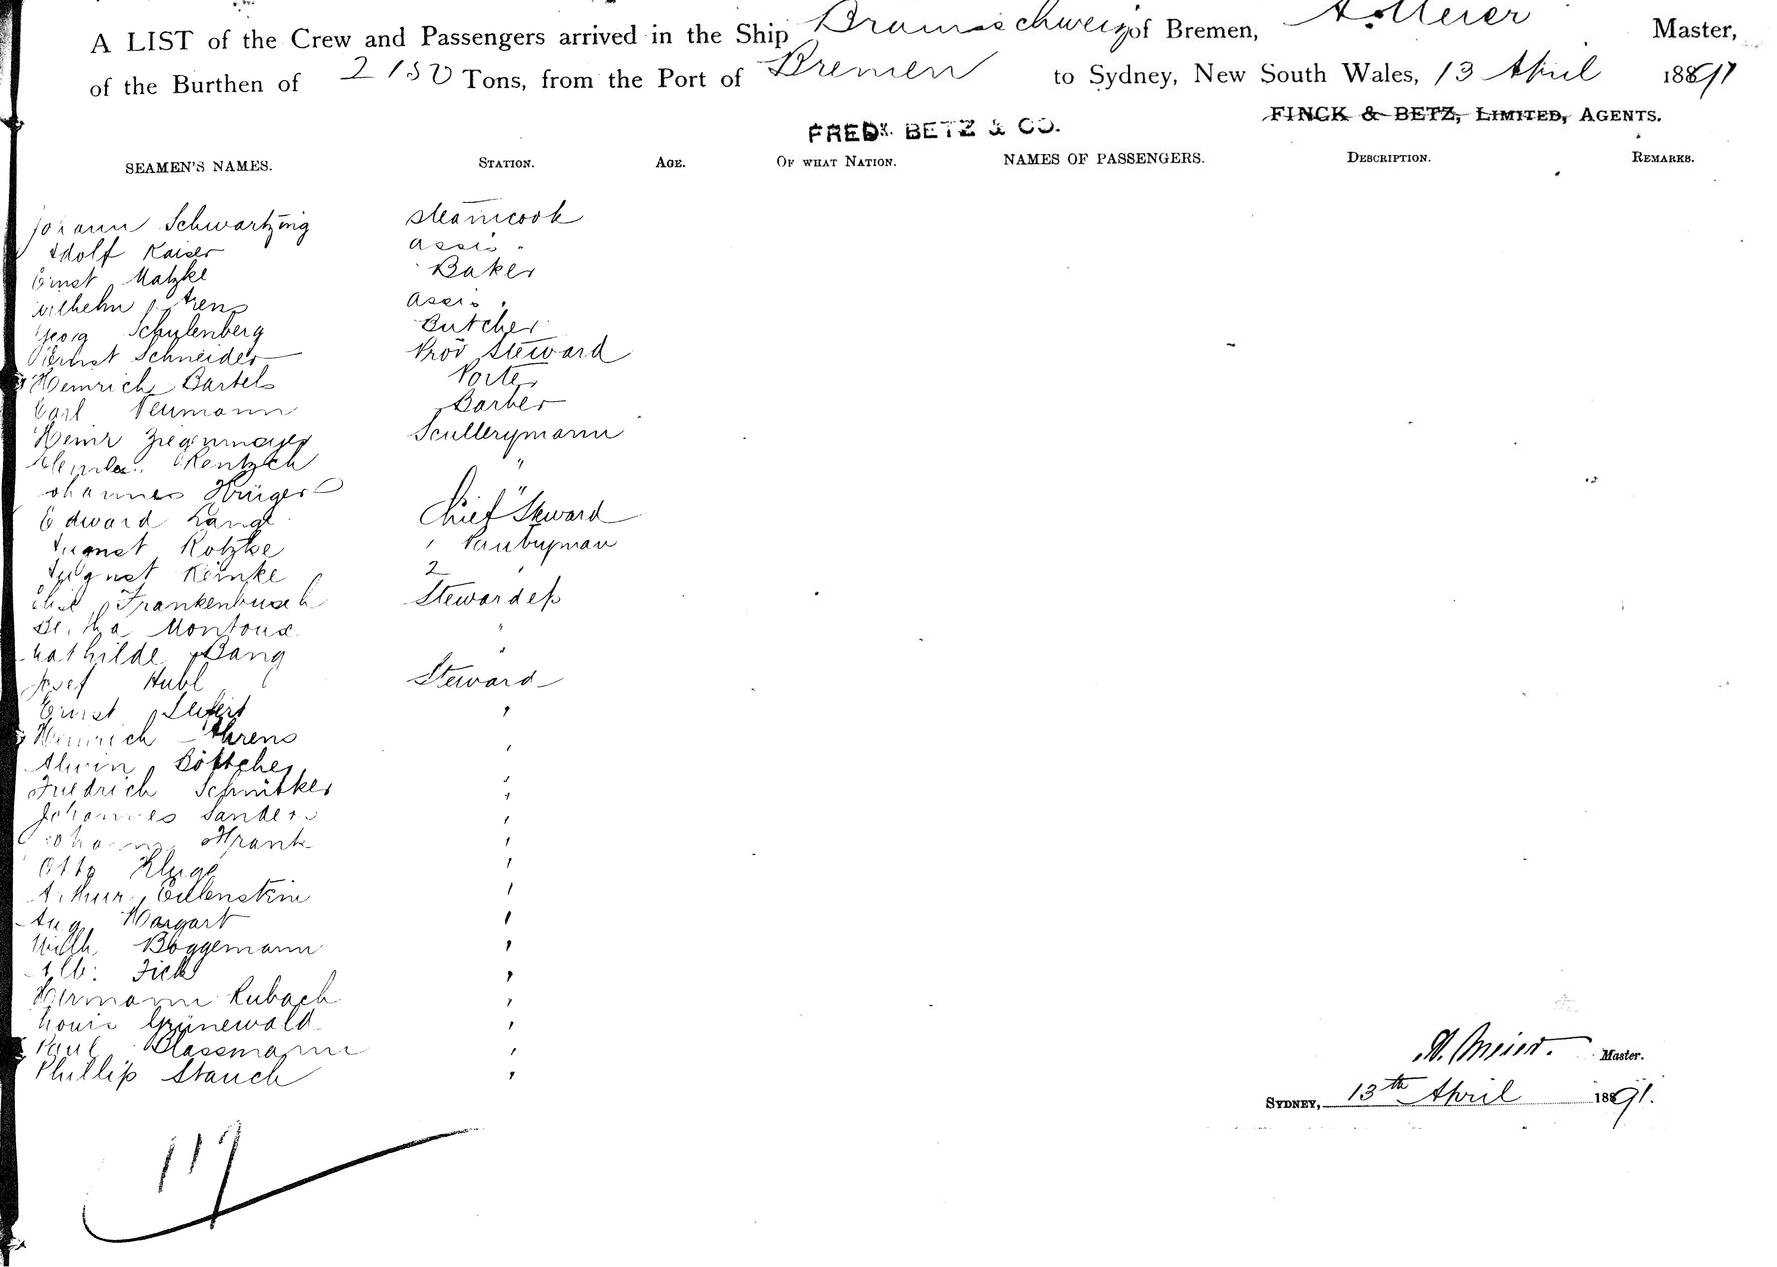 A LIST of the Crew and Passengers arrived in the Ship Braunschweig of Bremen, A. Meier Master,
of the Burthen of 2150 Tons, from the Port of Bremen to Sydney, New South Wales, 13 April 1891
FINCK & BETZ, LIMITED, AGENTS.
FREDK. BETZ & CO.
SEAMEN'S NAMES. STATION. AGE. OF WHAT NATION. NAMES OF PASSENGERS. DESCRIPTION. REMARKS.
Johann Schwartzing steamcook
Adolf Kaiser assis.
Ernst Matzke Baker
Wilhelm Ahrens assis.
Georg Schulenberg Butcher
Ernst Schneider Prov Steward
Heinrich Bartels Porter
Carl Neumann Barber
Heinr Ziegenmeyer Scullerymann
Rentzch "
Johannes Krüger "
Edward Lange Chief Steward
August Kotzke 1 Pantryman
August Reinke 2 "
Elise Frankenbusch Stewardess
Bertha Montoux "
Mathilde Bang "
Josef Hubl Steward
Ernst Seifert "
Heinrich Ahrens "
Alwin Böttcher "
Friedrich Schnitker "
Johannes Sanders "
Johann Frank "
Otto Kluge "
Arthur Eulenstein "
Aug Margart "
Wilh Böggemann "
Alb: Fick "
Hermann Rubach "
Louis Grünewald "
Paul Blassmann "
Phillip Stauch "
A. Meier. Master.
SYDNEY, 13th April 1891.
117